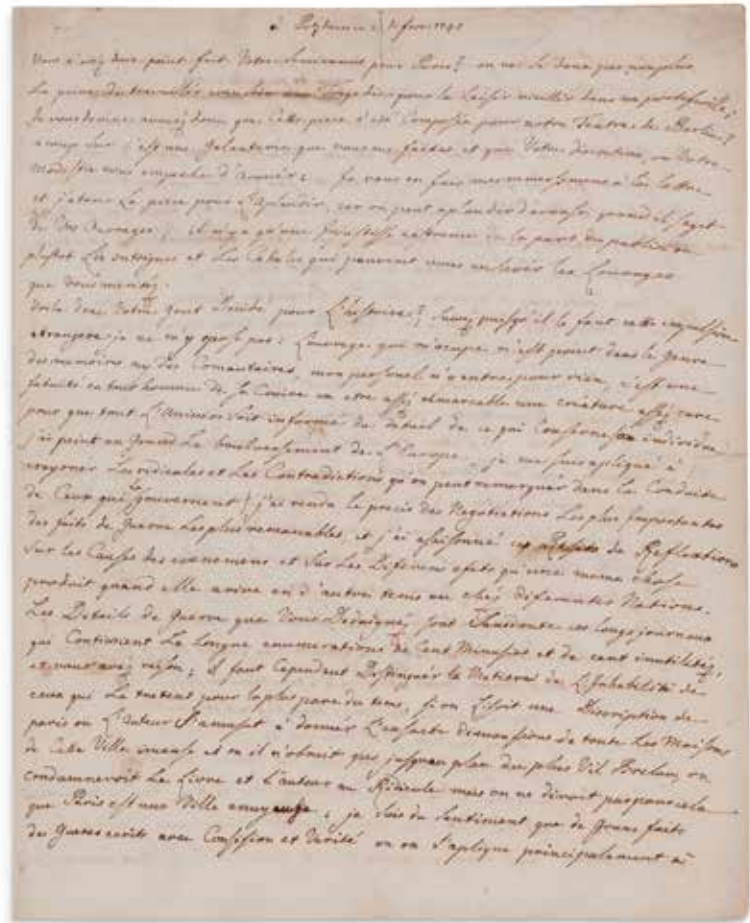 à Potzdam ce 13 fevr 1749
Vous n'avez donc point fait Votre Semiramis pour Paris? on ne se done pas non plus
La peine de travailler avec soin une Tragedie pour la laisser vieillir dans un portefeuille;
Je vous devine, avouez donc que Cette piece a été Composée pour notre Teatre de Berlin?
a coup sur c'est une Galanterie que vous me faites et que Votre discretion ou Votre
modestie vous empeche d'avouér: Je vous en fais mes remersiments à la lettre
et j'atans La piece pour L'aplaudir, car on peut aplaudir d'avance quand il s'agit
de Vos Ouvrages; il n'y a qu'une injustisse extreme de la part du public ou
plustot Les intrigues et Les Cabales qui peuvent vous enlevér les Louanges
que Vous meritéz.
Voila donc Votre gout Decidé pour L'histoire? suivez puisqu'il le faut cette impulsion
etrangere je ne m'y opose pas: L'ouvrage qui m'ocupe n'est point dans le genre
des memoires ny des Comentaires, mon personel n'y entre pour rien, c'est une
fatuité en tout homme de se Croire un etre assez remarcable une créature assez rare
pour que tout L'Univers soit informé du Détail de ce qui Conserne son individu
j'ai peint en Grand Le bouleversement de L'Europe, je me suis apliqué à
crayoner Les ridicules et Les Contradictions qu'on peut remarquér dans la Conduite
de Ceux qui la gouvernent; j'ai rendu le precis des Negotiations Les plus Importantes
des faits de Guerre Les plus remarcables, et j'ai assaisonné ces Resits de Reflections
sur les Causes des evenemens et sur Les Diferens efets qu'une meme chose
produit quand elle arive en d'autres tems ou chéz diferentes Nations.
Les Détails de Guerre que Vous Dedaignéz sont sans doute ces longs journaux
qui Contienent La Longue enumeration de Cent Minusies et de cent inutilitéz,
et vous avéz raison; il faut Cependent Distinguér la Matiere de L'Inhabilité de
ceux qui La traitent pour la plus part du tems, si on Lisoit une Discription de
paris ou L'auteur s'amusat à donnér L'exsacte dimenssions de toute Les Maisons
de Cette Ville imense et ou il n'obmit pas jusqu'au plan du plus Vil Brelan, on
condamneroit Le Livre et L'auteur au Ridicule mais on ne diroit pas pour cela
que Paris est une Ville enuyeuse; je suis du sentiment que de Grans faits
de Guerre ecrits avec Consision et Verité ou on s'aplique principalement à